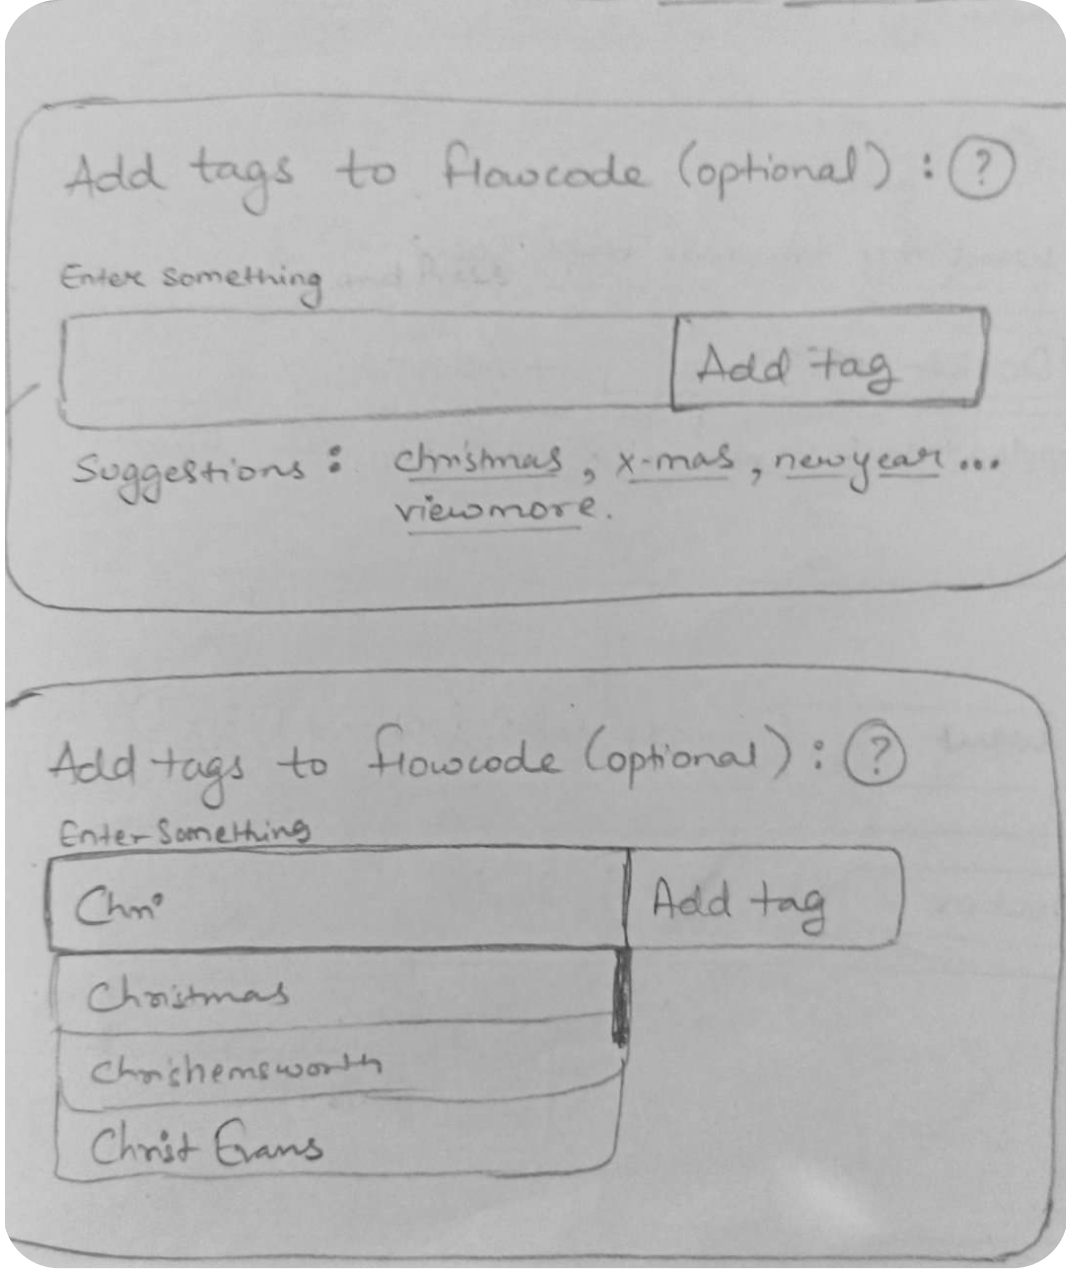 Add tags to flowcode (optional) : ?
Enter something
Add tag
Suggestions : christmas, x-mas, newyear...
viewmore.
Add tags to flowcode (optional) : ?
Enter Something
Chri
Add tag
Christmas
Chrishemsworth
Christ Evans